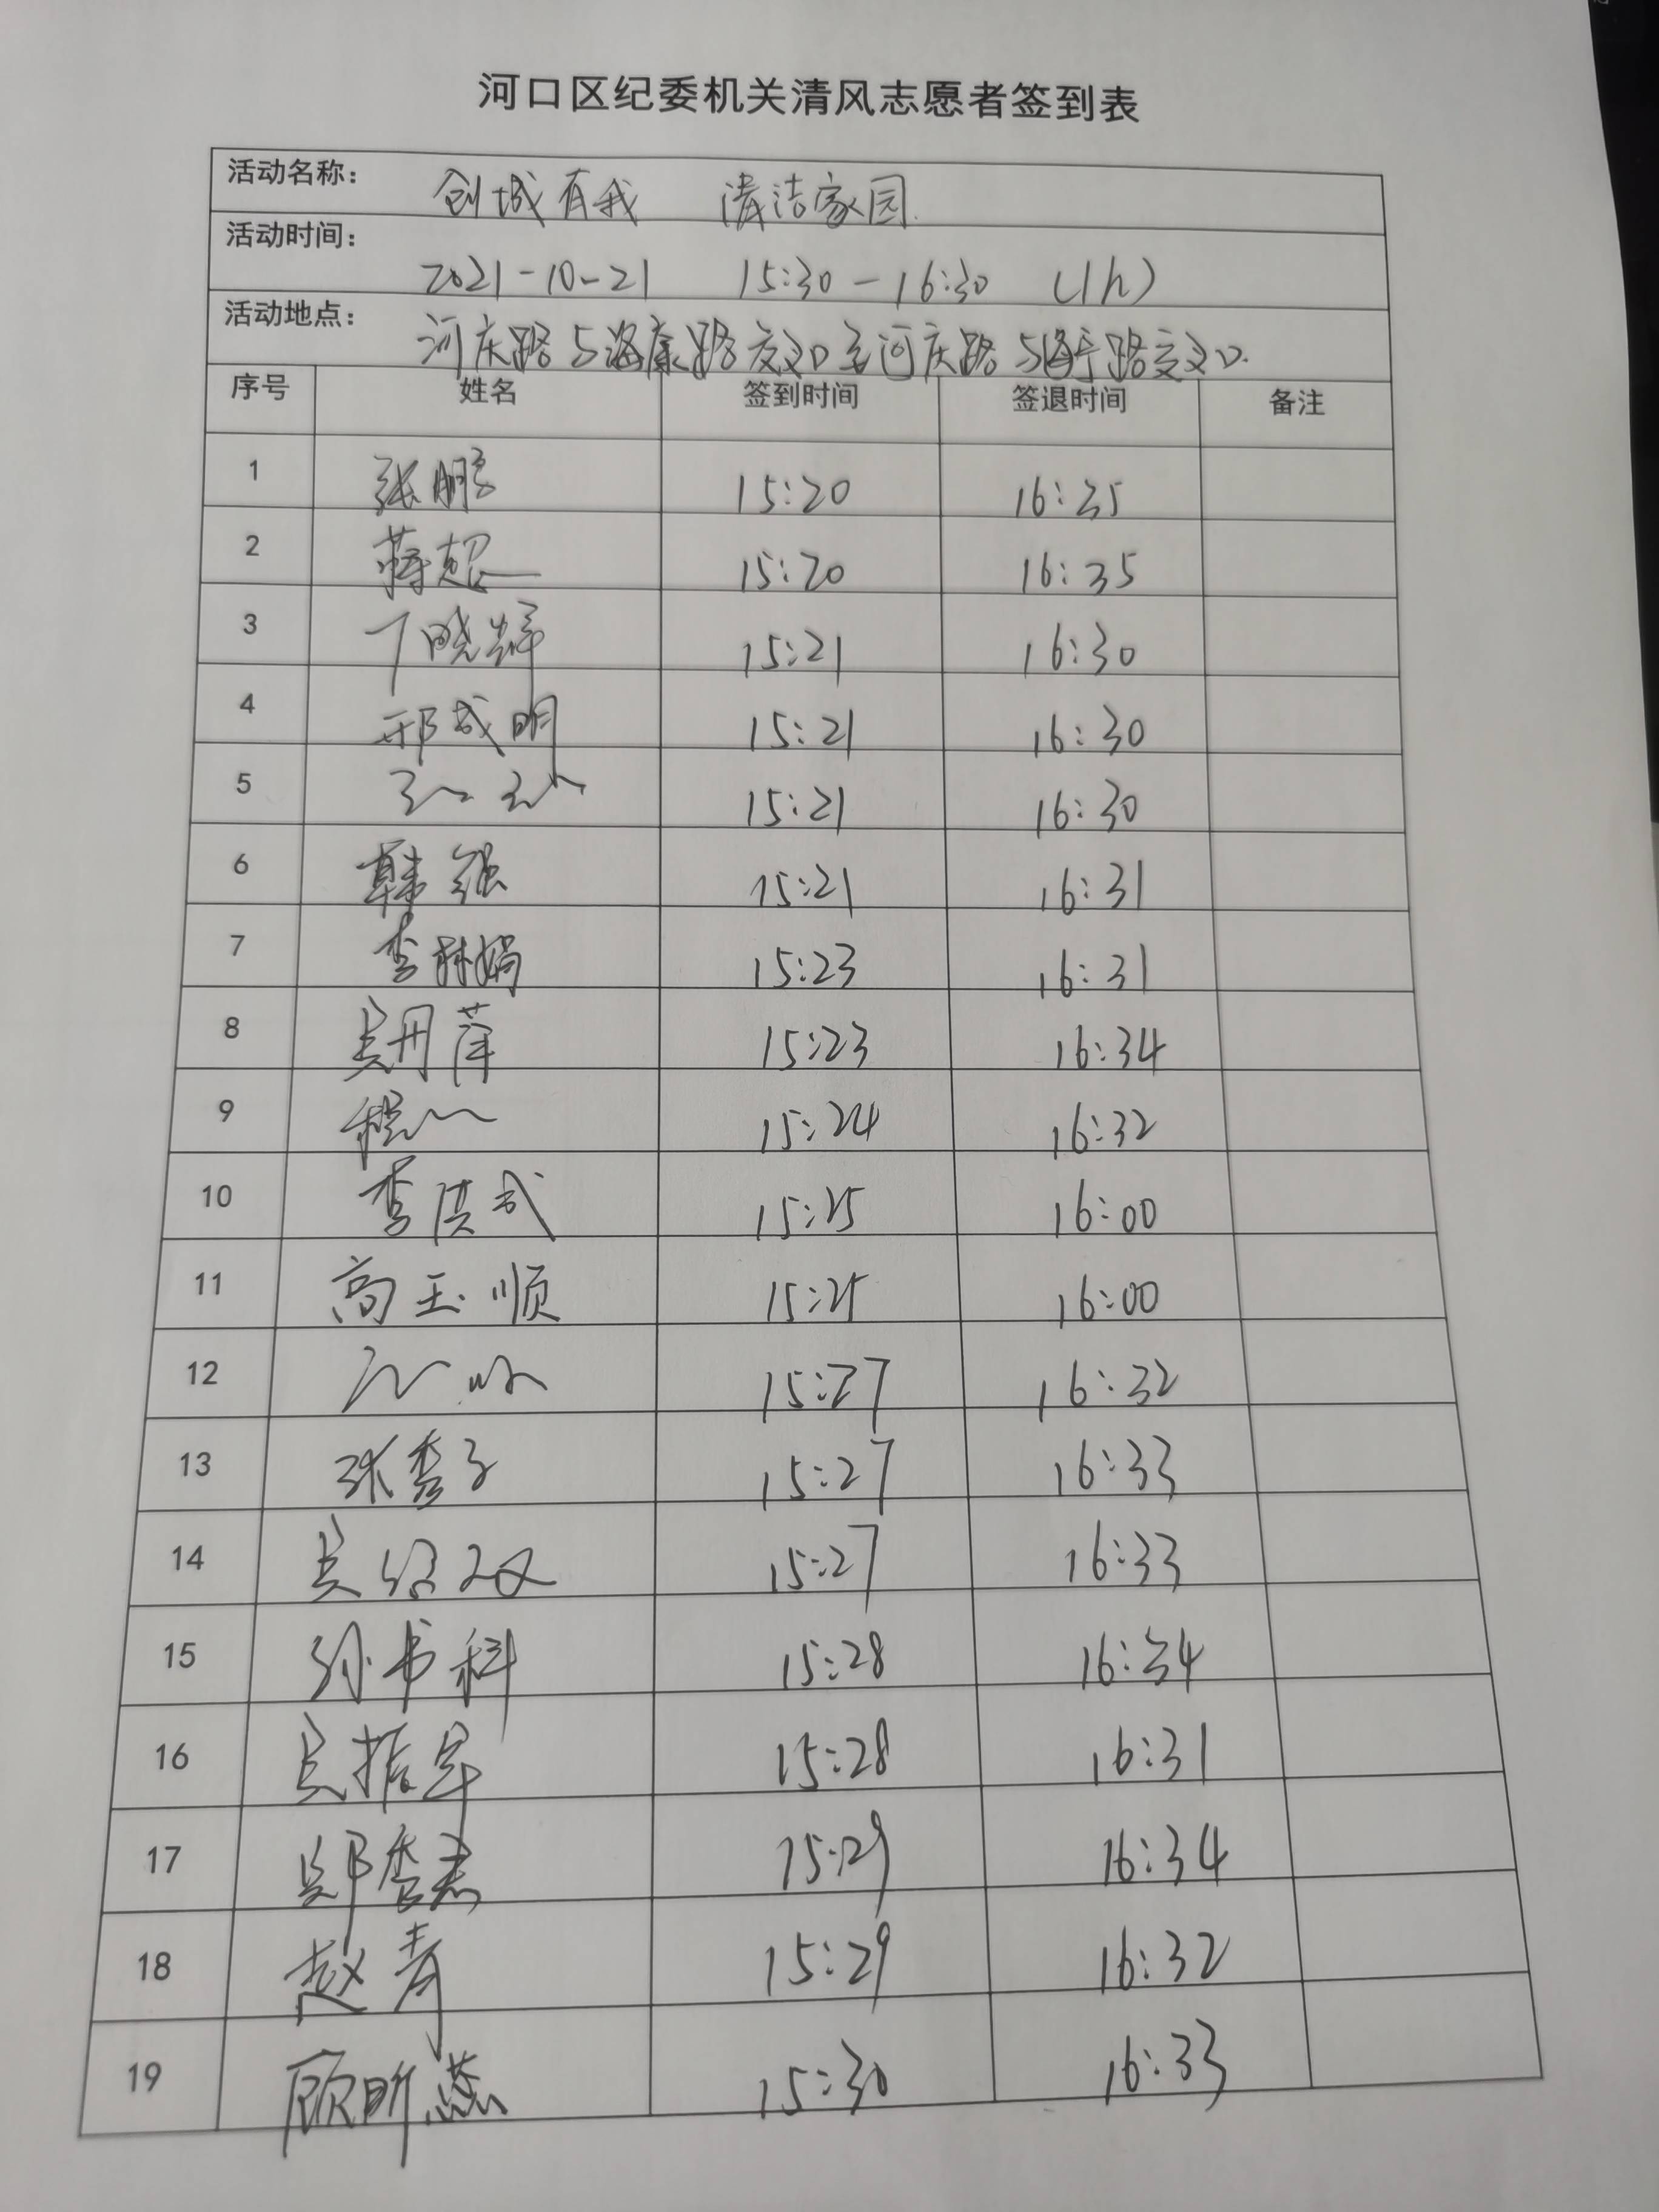 河口区纪委机关清风志愿者签到表
活动名称： 创城有我 清洁家园
活动时间： 2021-10-21 15:30-16:30 (1h)
活动地点： 河庆路与海康路交叉口至河庆路与海宁路交叉口
序号 姓名 签到时间 签退时间 备注
1 张鹏 15:20 16:35
2 蒋超 15:20 16:35
3 丁晓辉 15:21 16:30
4 邢成明 15:21 16:30
5 15:21 16:30
6 韩强 15:21 16:31
7 李林娟 15:23 16:31
8 吴丹萍 15:23 16:34
9 15:24 16:32
10 李洪武 15:25 16:00
11 高玉顺 15:25 16:00
12 15:27 16:32
13 张秀子 15:27 16:33
14 15:27 16:33
15 孙书科 15:28 16:34
16 吴振军 15:28 16:31
17 15:29 16:34
18 赵青 15:29 16:32
19 顾昕燕 15:30 16:33